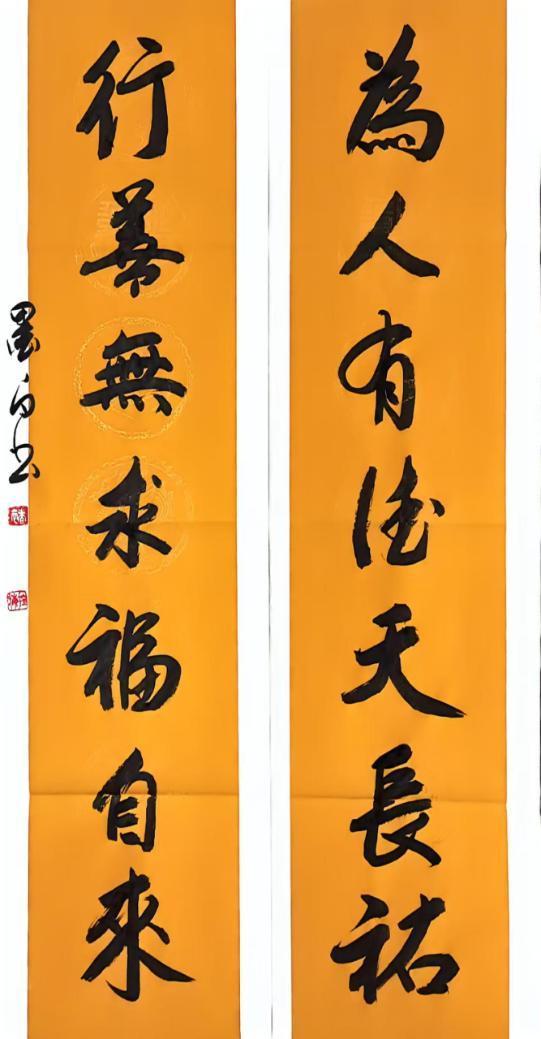 為人有德天長祐
行善無求福自來
墨白书